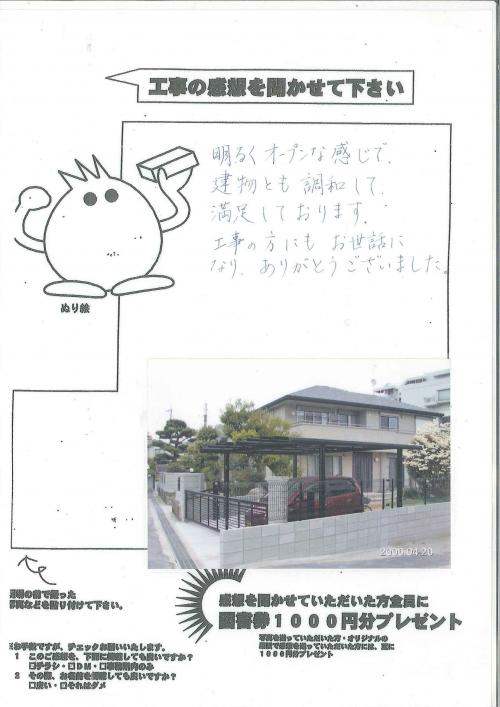 工事の感想を聞かせて下さい
明るくオープンな感じで、
建物とも調和して、
満足しております。
工事の方にもお世話に
なり、ありがとうございました。
ぬり絵
2000.04.20
現場の前で撮った
写真などを貼り付けて下さい。
感想を聞かせていただいた方全員に
図書券1000円分プレゼント
写真を撮っていただいた方・オリジナルの
1000円分プレゼント
お手数ですが、チェックお願いいたします。
1 このご感想を、下記に掲載しても良いですか?
□チラシ・□DM・□事務所内のみ
2 その際、お名前を掲載しても良いですか?
□良い・□それはダメ